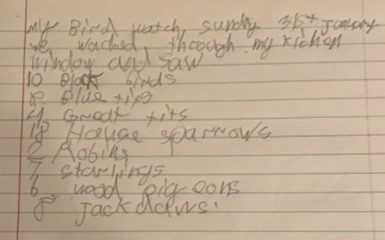 my Bird watch, sunday 31st January
we wached through my kichen
window and saw
10 Black birds
8 Blue tits
4 Great tits
18 House sparrows
2 Robins
7 starlings
6 wood pigeons
8 jackdaws.